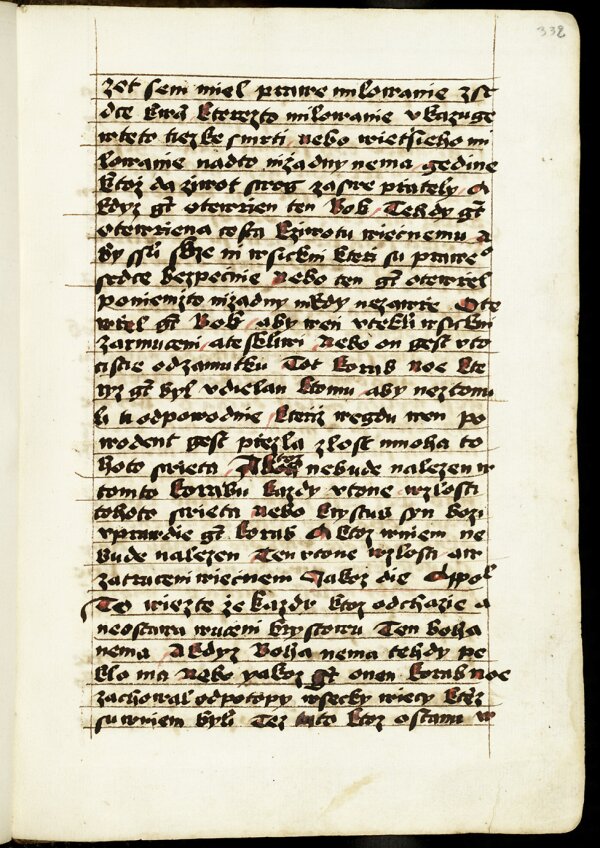 338
zet sem miel prawe milowanie zsr
dce kterezto milowanie vkazuge
wteto tiezke smrti Nebo wietsieho mi
lowanie nadto nizadny nema gedine
ktoz da zywot swog zaswe prately A
kdyz gt otewrien ten Bok Tehdy gt
otewriena cesta kziwotu wiecnemu A
by ssli skrze ni wsickni kteri su prawe
srdce bezpecnie Nebo ten gt otewrel
poniemzto nizadny nikdy nezawrie Ote
wrel gt Bok aby wen vtekli wsickni
zarmuceni ateskliwi Nebo on gest vto
cistie odzamutku Tot korab noe kte
ryz gt byl vdielan ktomu aby neztonu
li ti odpowodnie kteriz wegdu wen po
wodent gest priezla zlost mnoha to
hoto swieta A ktoz nebude nalezen w
tomto korabu kazdy vtone wzlosti
tohoto swieta Nebo krystus syn bozi
vprawdie gt korab A ktoz wniem ne
bude nalezen Ten vtone wzlosti aw
zatraceni wiecnem Jakoz die Appol
To wiezte ze kazdy ktoz odchazie a
neostawa wuceni krystowu Ten boha
nema A kdyz Boha nema tehdy pe
klo ma Nebo yakoz gt onen korab noe
zachowal odpotopy wsecky wiecy ktez
su wniem byli Tez tuto ktoz ostanu w